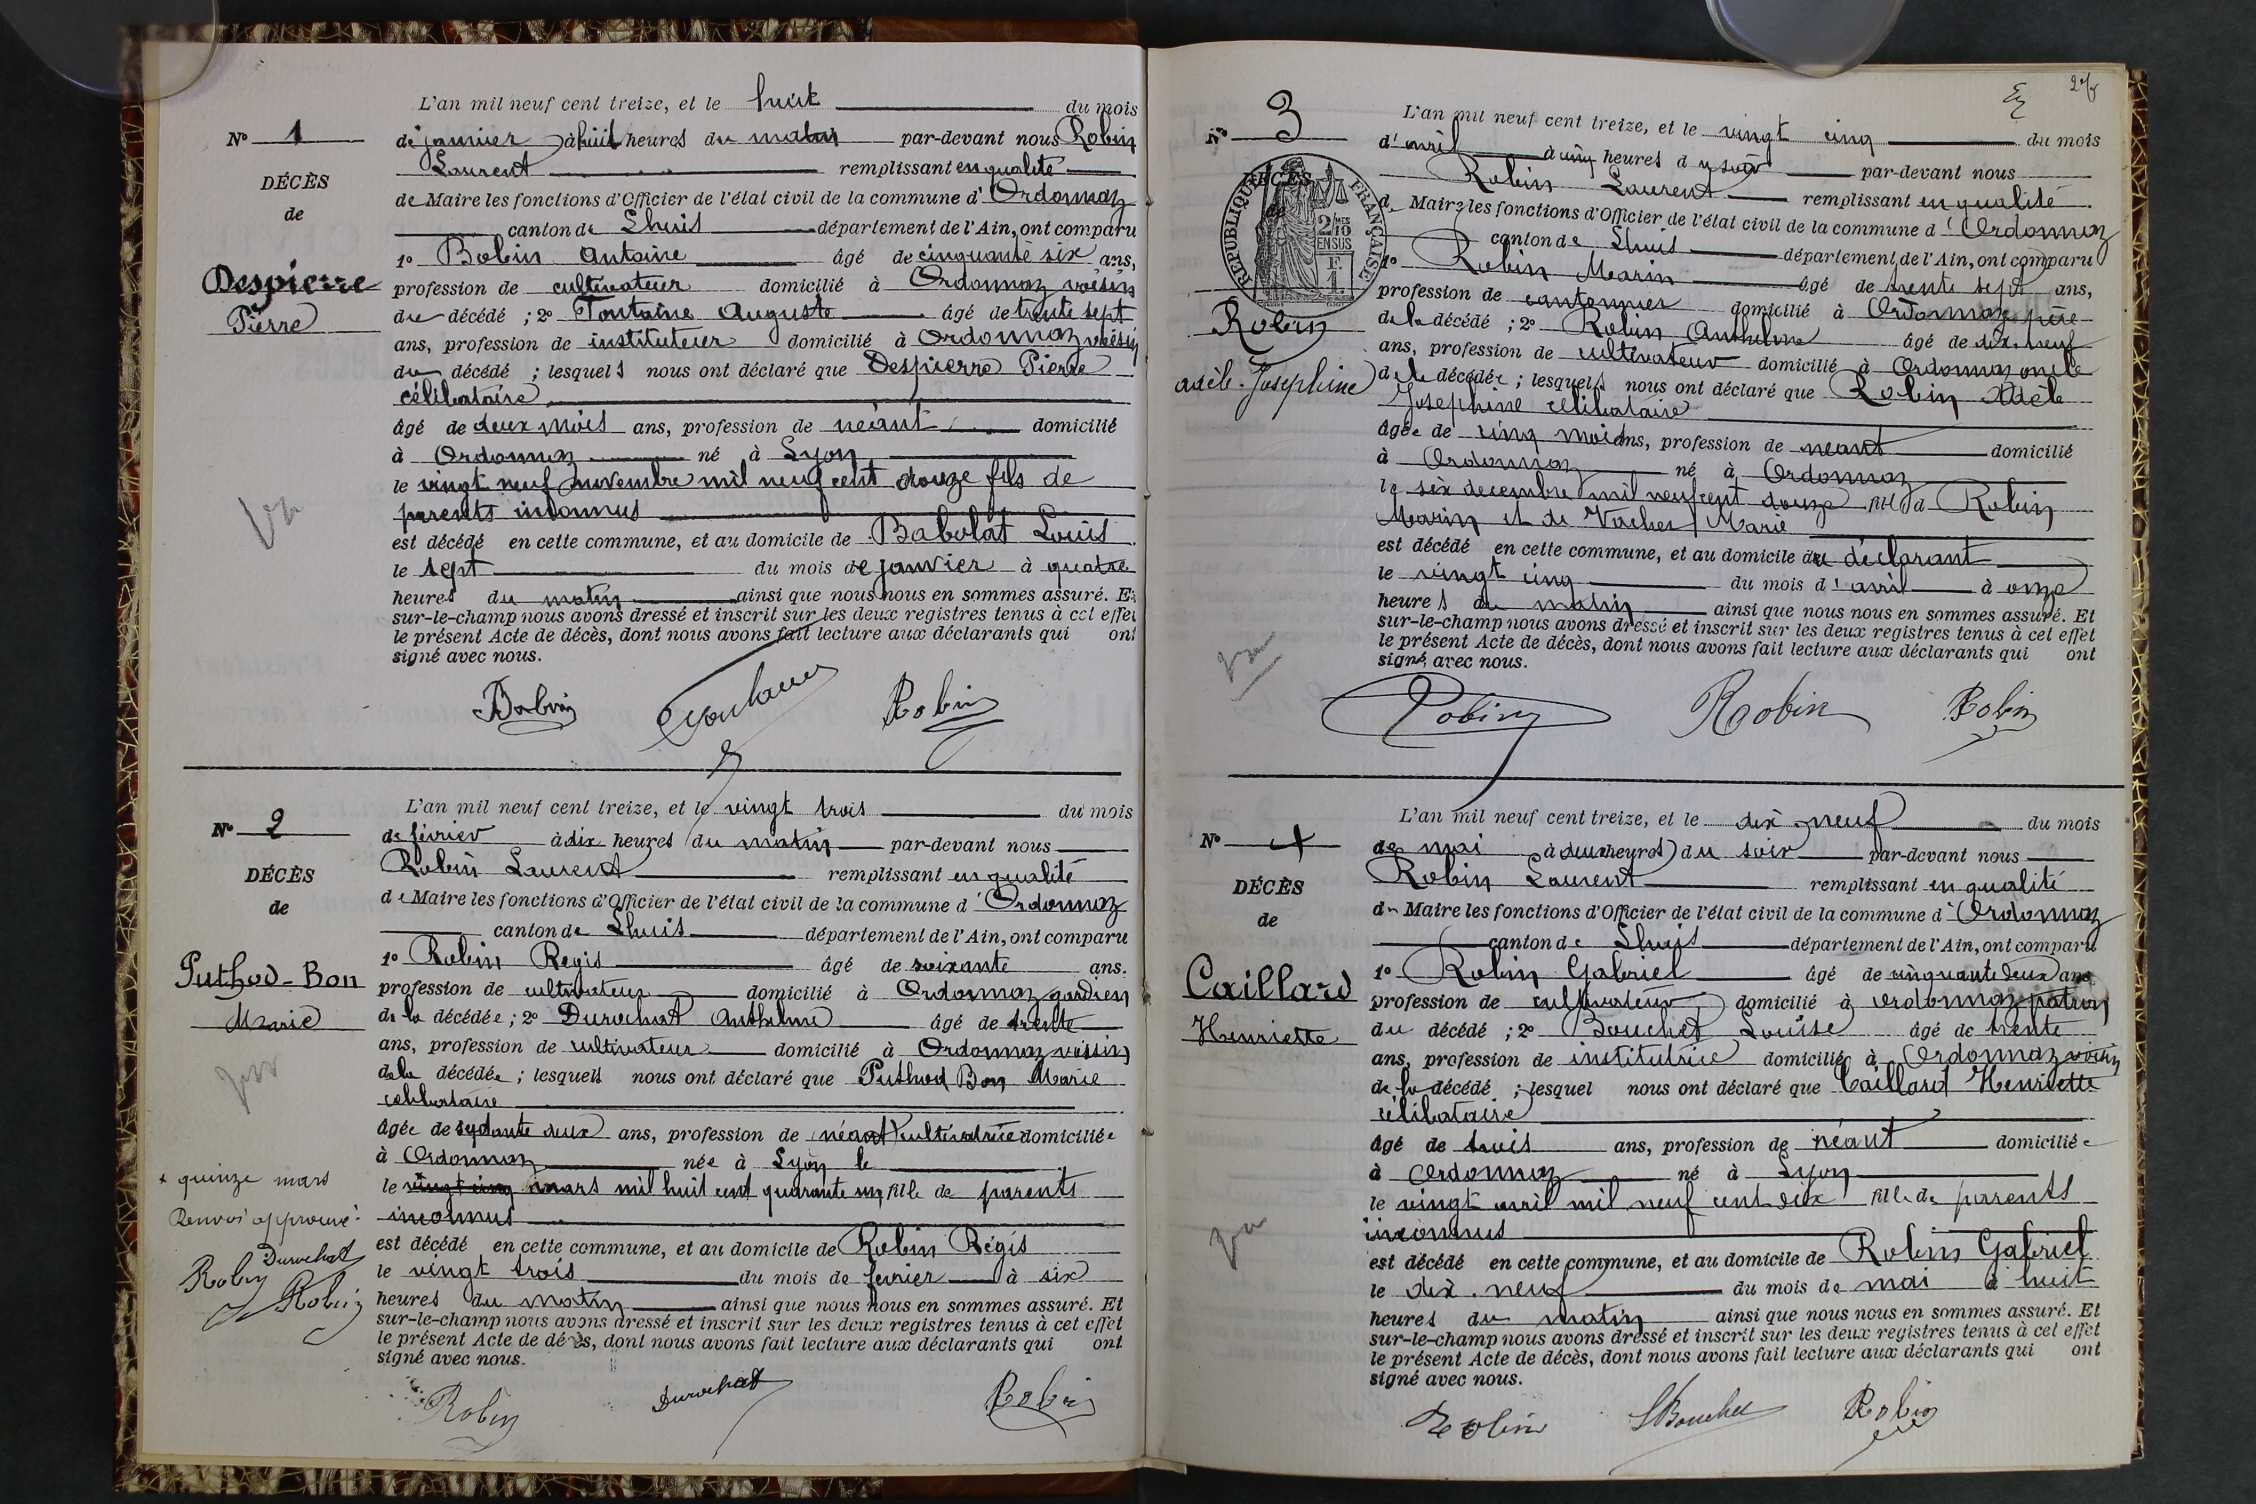 L'an mil neuf cent treize, et le huit du mois
N° 1
de janvier à huit heures du matin par-devant nous Robin
Laurent remplissant en qualité
DÉCÈS
de
de Maire les fonctions d'Officier de l'état civil de la commune d' Ordonnaz
canton de Lhuis département de l'Ain, ont comparu
1° Bobin Antoine âgé de cinquante six ans,
Despierre
Pierre
profession de cultivateur domicilié à Ordonnaz voisins
du décédé ; 2° Fontaine Auguste âgé de trente sept
ans, profession de instituteur domicilié à Ordonnaz voisin
du décédé ; lesquels nous ont déclaré que Despierre Pierre
célibataire
âgé de deux mois ans, profession de néant domicilié
à Ordonnaz né à Lyon
le vingt neuf novembre mil neuf cent douze fils de
parents inconnus
est décédé en cette commune, et au domicile de Babolat Louis
le sept du mois de janvier à quatre
heures du matin ainsi que nous nous en sommes assuré. Et
sur-le-champ nous avons dressé et inscrit sur les deux registres tenus à cet effet
le présent Acte de décès, dont nous avons fait lecture aux déclarants qui ont
signé avec nous.
Bobin Fontaine Robin
L'an mil neuf cent treize, et le vingt trois du mois
N° 2
de février à dix heures du matin par-devant nous
Robin Laurent remplissant en qualité
DÉCÈS
de
de Maire les fonctions d'Officier de l'état civil de la commune d' Ordonnaz
canton de Lhuis département de l'Ain, ont comparu
1° Robin Regis âgé de soixante ans.
Puthod-Bon
Marie
profession de cultivateur domicilié à Ordonnaz gardien
de la décédée ; 2° Durochat Anthelme âgé de trente
ans, profession de cultivateur domicilié à Ordonnaz voisin
de la décédée ; lesquels nous ont déclaré que Puthod Bon Marie
célibataire
âgée de septante deux ans, profession de néant cultivatrice domiciliée
à Ordonnaz née à Lyon le
le vingt cinq mars mil huit cent quarante un fille de parents
inconnus
+ quinze mars
Renvoi approuvé
Durochat
Robin Robin
est décédé en cette commune, et au domicile de Robin Régis
le vingt trois du mois de fevrier à six
heures du matin ainsi que nous nous en sommes assuré. Et
sur-le-champ nous avons dressé et inscrit sur les deux registres tenus à cet effet
le présent Acte de décès, dont nous avons fait lecture aux déclarants qui ont
signé avec nous.
Robin Durochat Robin
L'an mil neuf cent treize, et le vingt cinq du mois
N° 3
d'avril à cinq heures du soir par-devant nous
Robin Laurent remplissant en qualité
DÉCÈS
de
RÉPUBLIQUE FRANÇAISE
2/10MES
EN SUS
F.
1.
de Maire les fonctions d'Officier de l'état civil de la commune d' Ordonnaz
canton de Lhuis département de l'Ain, ont comparu
1° Robin Marin âgé de trente sept ans,
profession de cantonnier domicilié à Ordonnaz père
Robin
adèle-Josephine
de la décédé ; 2° Robin Anthelme âgé de dix neuf
ans, profession de cultivateur domicilié à Ordonnaz oncle
de la décédée ; lesquels nous ont déclaré que Robin Adèle
Josephine célibataire
âgée de cinq mois ans, profession de néant domicilié
à Ordonnaz né à Ordonnaz
le six decembre mil neuf cent douze fille d Robin
Marin et de Vacher Marie
est décédé en cette commune, et au domicile du déclarant
le vingt cinq du mois d'avril à onze
heures du matin ainsi que nous nous en sommes assuré. Et
sur-le-champ nous avons dressé et inscrit sur les deux registres tenus à cet effet
le présent Acte de décès, dont nous avons fait lecture aux déclarants qui ont
signé avec nous.
Robin Robin Robin
L'an mil neuf cent treize, et le dix neuf du mois
N° 4
de mai à deux heures du soir par-devant nous
Robin Laurent remplissant en qualité
DÉCÈS
de
de Maire les fonctions d'Officier de l'état civil de la commune d' Ordonnaz
canton de Lhuis département de l'Ain, ont comparu
1° Robin Gabriel âgé de cinquante deux ans
Caillard
Henriette
profession de cultivateur domicilié à Ordonnaz patron
du décédé ; 2° Bouchet Louise âgé de trente
ans, profession de institutrice domiciliée à Ordonnaz voisin
de la décédé ; lesquel nous ont déclaré que Caillard Henriette
célibataire
âgé de trois ans, profession de néant domiciliée
à Ordonnaz né à Lyon
le vingt avril mil neuf cent dix fille de parents
inconnus
est décédé en cette commune, et au domicile de Robin Gabriel
le dix neuf du mois de mai à huit
heures du matin ainsi que nous nous en sommes assuré. Et
sur-le-champ nous avons dressé et inscrit sur les deux registres tenus à cet effet
le présent Acte de décès, dont nous avons fait lecture aux déclarants qui ont
signé avec nous.
Robin LBouchet Robin